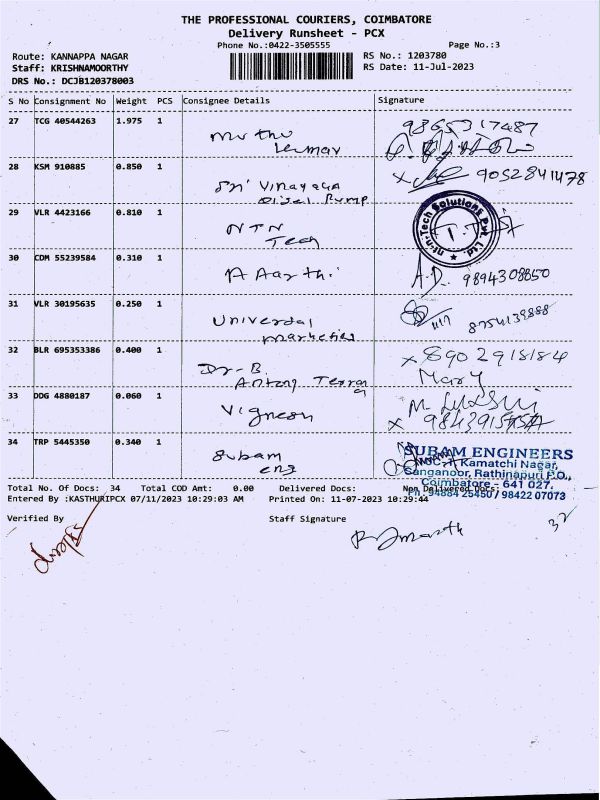 THE PROFESSIONAL COURIERS, COIMBATORE
Delivery Runsheet - PCX
Phone No.:0422-3505555
Page No.:3
Route: KANNAPPA NAGAR
RS No.: 1203780
Staff: KRISHNAMOORTHY
RS Date: 11-Jul-2023
DRS No.: DCJB120378003
S No Consignment No Weight PCS Consignee Details Signature
27 TCG 40544263 1.975 1
9865317487
Muthu
28 KSM 910885 0.850 1
x 9052841478
Sri Vinayaga
Disal Pump
29 VLR 4423166 0.810 1
nt-n-Tech Solutions Pvt. Ltd.
NTN
Tech
30 CDM 55239584 0.310 1
A Aarthi
A.D. 9894308850
31 VLR 30195635 0.250 1
Universal
marketing
8754139888
32 BLR 695353386 0.400 1
x 8902915184
Dr-B.
Antony
Mary
33 DDG 4880187 0.060 1
Vignesh
M.
x
34 TRP 5445350 0.340 1
Subam
eng
SUBAM ENGINEERS
Kamatchi Nagar,
Ganganoor, Rathinapuri P.O.,
Coimbatore - 641 027.
Ph: 94884 25450 / 98422 07073
Total No. Of Docs: 34 Total COD Amt: 0.00 Delivered Docs: Non Delivered Docs:
Entered By :KASTHURIPCX 07/11/2023 10:29:03 AM Printed On: 11-07-2023 10:29:44
Verified By Staff Signature
32